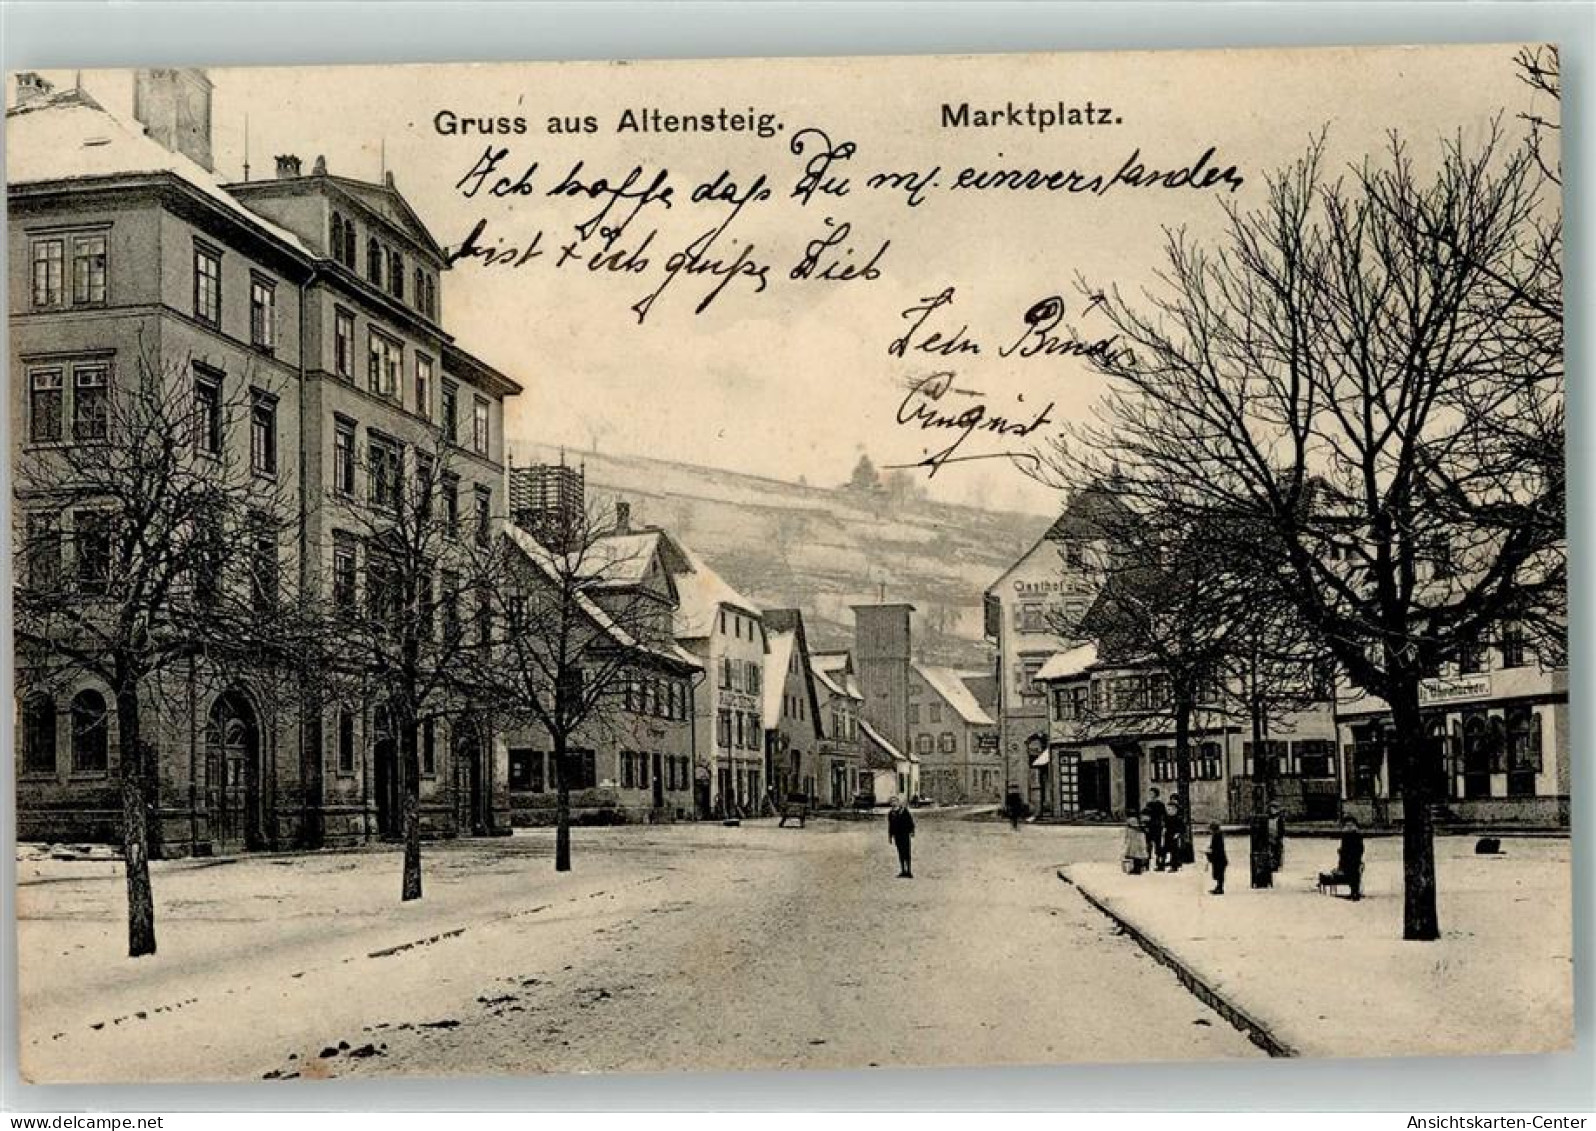 Gruss aus Altensteig. Marktplatz.
Ich hoffe, daß Du mf. einverstanden
bist + ich grüße Dich
Dein Bruder
August
Gasthof z.
delcampe.net
Ansichtskarten-Center